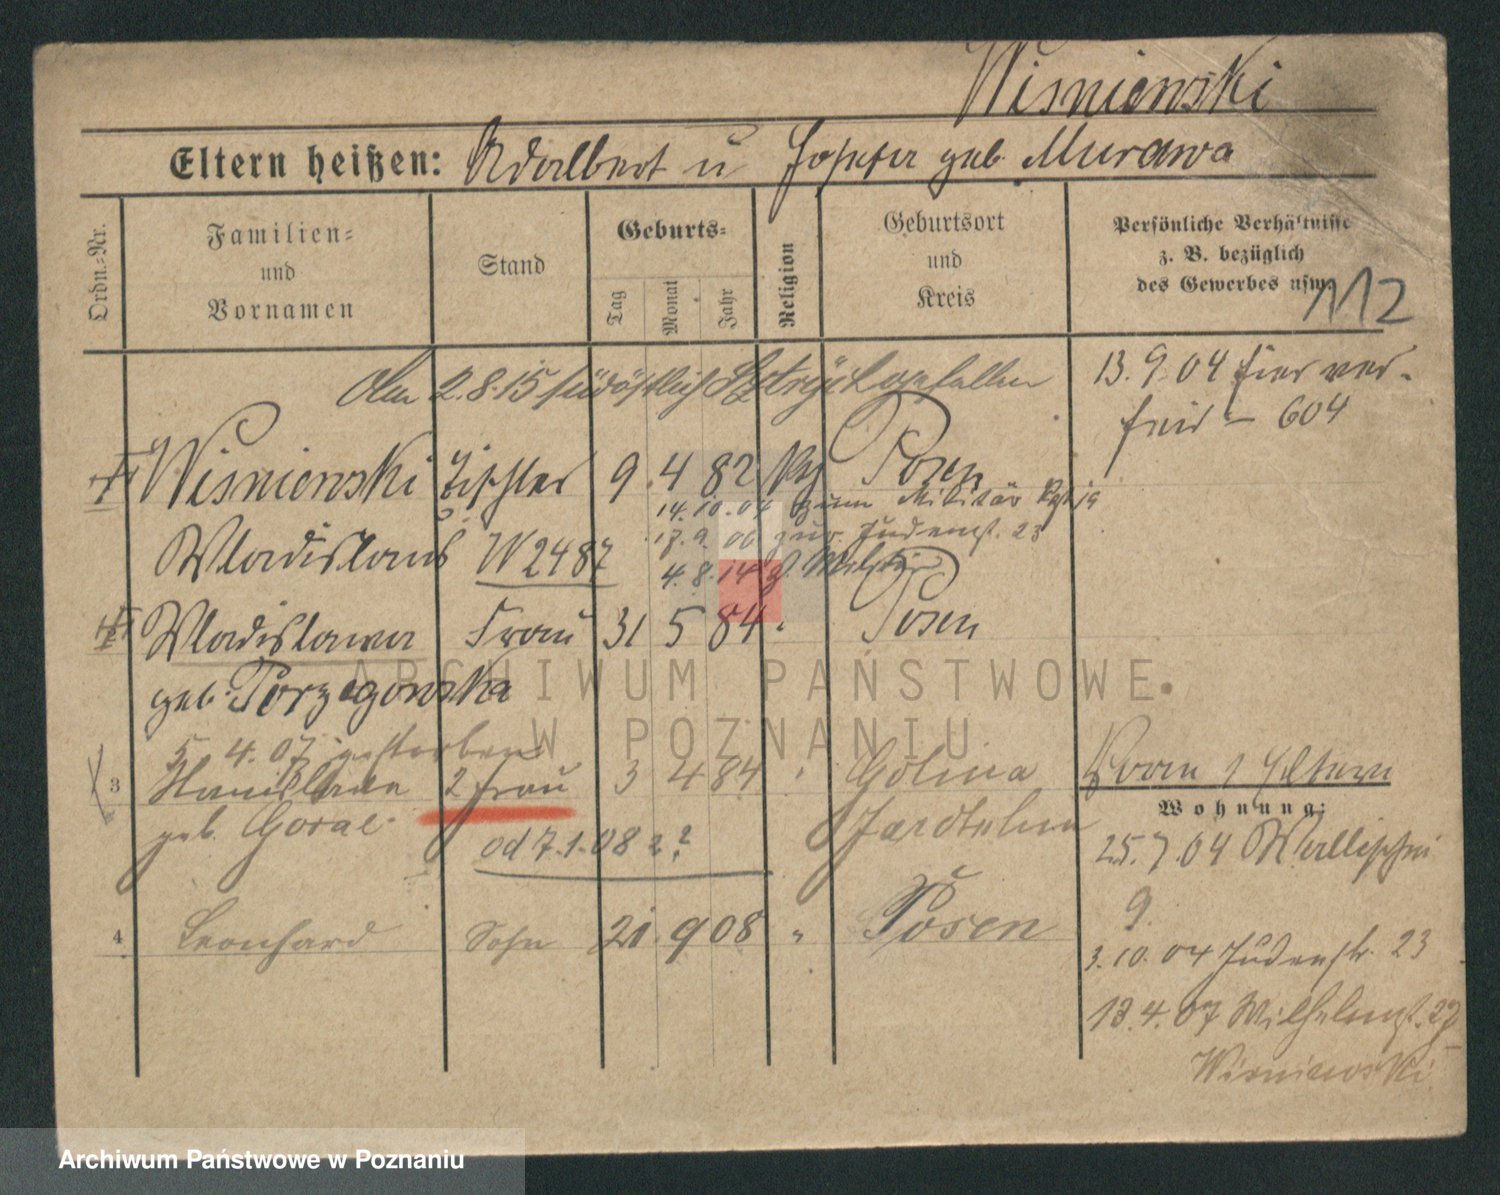 Wisniewski
Eltern heißen: Adalbert u Josefa geb. Murawa
Ordn.=Nr.
Familien=
und
Vornamen
Stand
Geburts=
Tag
Monat
Jahr
Religion
Geburtsort
und
Kreis
Persönliche Verhältnisse
z. B. bezüglich
des Gewerbes usw.
112
Am 2.8.15 südöstlich gefallen
13.9.04 hier ver-
heir - 604
Wisniewski Tischler 9. 4 82 Posen
14.10.04 zum Militär
Wladislaus W2487
17.9.06 zur. Judenst. 23
4.8.14 z. Militär
Wladislawa Frau 31 5 84 " Posen
geb. Porzegowska
5. 4. 07 gestorben
3 Stanislawa 2 Frau 3 4 84 " Golina
geb. Goral Jarotschin
od 7.1.08 2?
Korn / Eltern
Wohnung:
25.7.04 Wallischei
9.
4 Leonhard Sohn 21. 9 08 " Posen
3.10.04 Judenstr. 23
13.4.07 Wilhelmst. 27
Wisniewski
ARCHIWUM PAŃSTWOWE
W POZNANIU
Archiwum Państwowe w Poznaniu